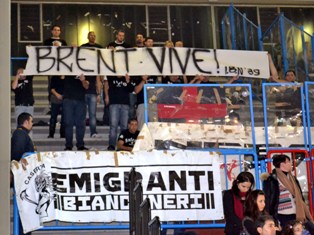 BRENT VIVE!
EMIGRANTI
BIANCONERI